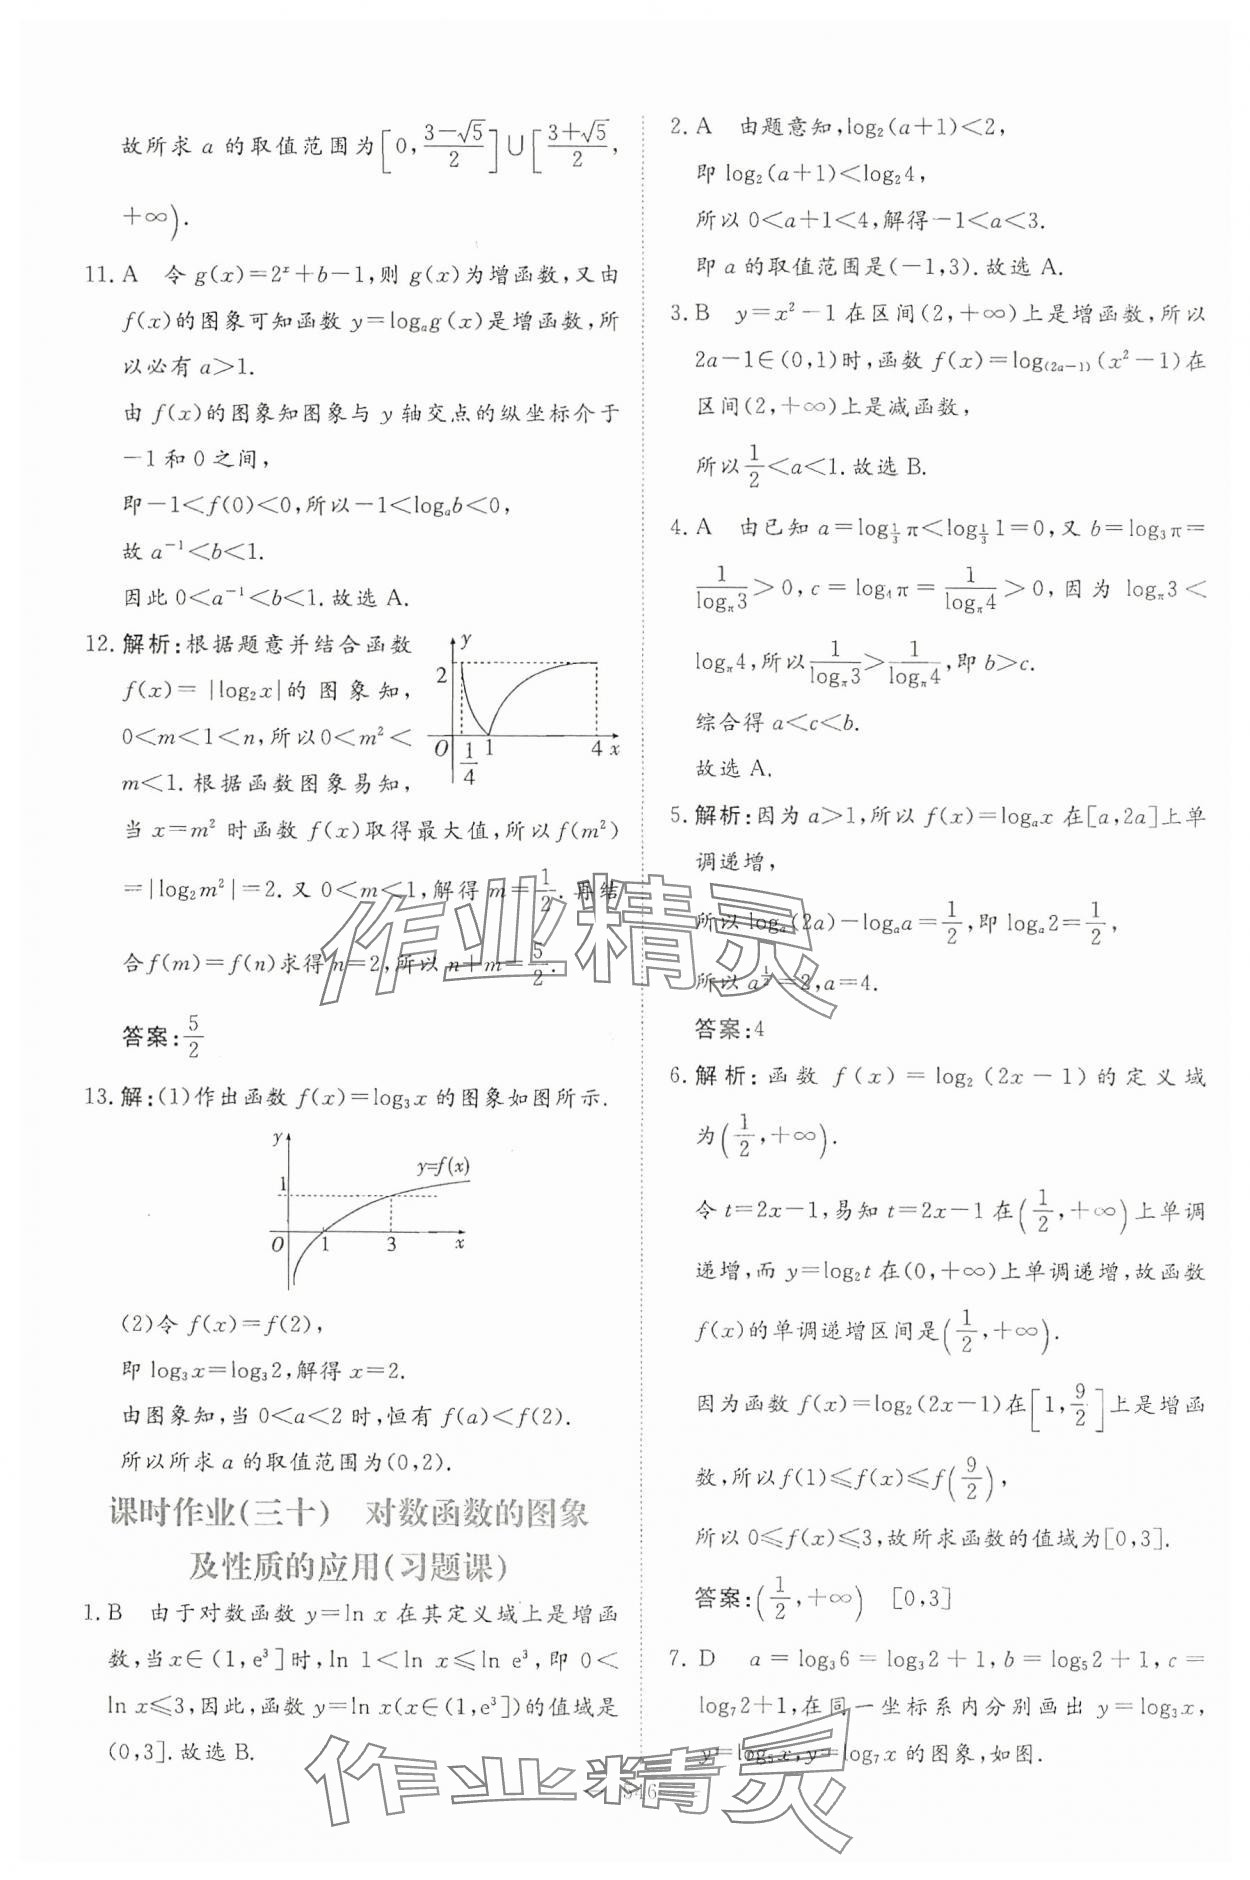 故所求 a 的取值范围为[0,(3-√5)/2]∪[(3+√5)/2,
+∞).
11. A 令 g(x)=2ˣ+b-1,则 g(x)为增函数,又由
f(x)的图象可知函数 y=logₐg(x)是增函数,所
以必有 a>1.
由 f(x)的图象知图象与 y 轴交点的纵坐标介于
-1 和 0 之间,
即-1<f(0)<0,所以-1<logₐb<0,
故 a⁻¹<b<1.
因此 0<a⁻¹<b<1.故选 A.
12. 解析:根据题意并结合函数
f(x)=|log₂x|的图象知,
0<m<1<n,所以0<m²<
m<1.根据函数图象易知,
y
2
O
1/4
1
4
x
当 x=m² 时函数 f(x)取得最大值,所以f(m²)
=|log₂m²|=2.又 0<m<1,解得 m=1/2.再结
合f(m)=f(n)求得 n=2,所以 n+m=5/2.
答案:5/2
13. 解:(1)作出函数 f(x)=log₃x 的图象如图所示.
y
y=f(x)
1
O
1
3
x
(2)令 f(x)=f(2),
即 log₃x=log₃2,解得 x=2.
由图象知,当 0<a<2 时,恒有 f(a)<f(2).
所以所求 a 的取值范围为(0,2).
课时作业(三十) 对数函数的图象
及性质的应用(习题课)
1. B 由于对数函数 y=ln x 在其定义域上是增函
数,当x∈(1,e³]时,ln 1<ln x≤ln e³,即 0<
ln x≤3,因此,函数 y=ln x(x∈(1,e³])的值域是
(0,3].故选 B.
2. A 由题意知,log₂(a+1)<2,
即 log₂(a+1)<log₂4,
所以 0<a+1<4,解得-1<a<3.
即 a 的取值范围是(-1,3).故选 A.
3. B y=x²-1 在区间(2,+∞)上是增函数,所以
2a-1∈(0,1)时,函数 f(x)=log₍₂ₐ₋₁₎(x²-1)在
区间(2,+∞)上是减函数,
所以 1/2<a<1.故选 B.
4. A 由已知 a=log_{1/3}π<log_{1/3}1=0,又 b=log₃π=
1/(log_π3)>0,c=log₄π=1/(log_π4)>0,因为 log_π3<
log_π4,所以 1/(log_π3)>1/(log_π4),即 b>c.
综合得 a<c<b.
故选 A.
5. 解析:因为 a>1,所以 f(x)=logₐx 在[a,2a]上单
调递增,
所以 logₐ(2a)-logₐa=1/2,即 logₐ2=1/2,
所以 a^{1/2}=2,a=4.
答案:4
6. 解析:函数 f(x)=log₂(2x-1)的定义域
为(1/2,+∞).
令 t=2x-1,易知 t=2x-1 在(1/2,+∞)上单调
递增,而 y=log₂t 在(0,+∞)上单调递增,故函数
f(x)的单调递增区间是(1/2,+∞).
因为函数 f(x)=log₂(2x-1)在[1,9/2]上是增函
数,所以 f(1)≤f(x)≤f(9/2),
所以 0≤f(x)≤3,故所求函数的值域为[0,3].
答案:(1/2,+∞) [0,3]
7. D a=log₃6=log₃2+1,b=log₅2+1,c=
log₇2+1,在同一坐标系内分别画出 y=log₃x,
y=log₅x,y=log₇x 的图象,如图.
作业精灵
作业精灵